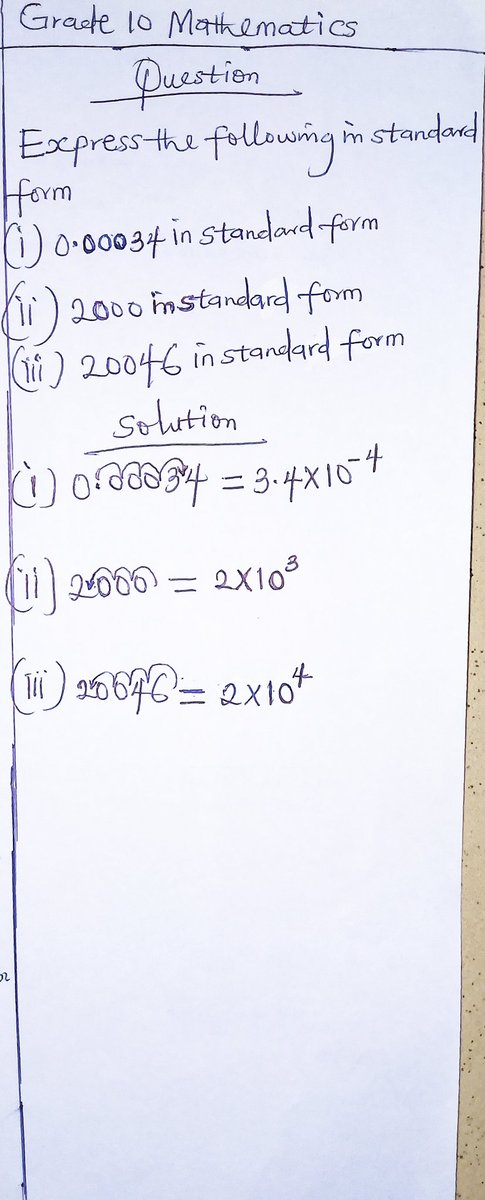 Grade 10 Mathematics
Question
Express the following in standard
form
(i) 0.00034 in standard form
(ii) 2000 in standard form
(iii) 20046 in standard form
Solution
(i) 0.00034 = 3.4×10⁻⁴
(ii) 2000 = 2×10³
(iii) 20046 = 2×10⁴